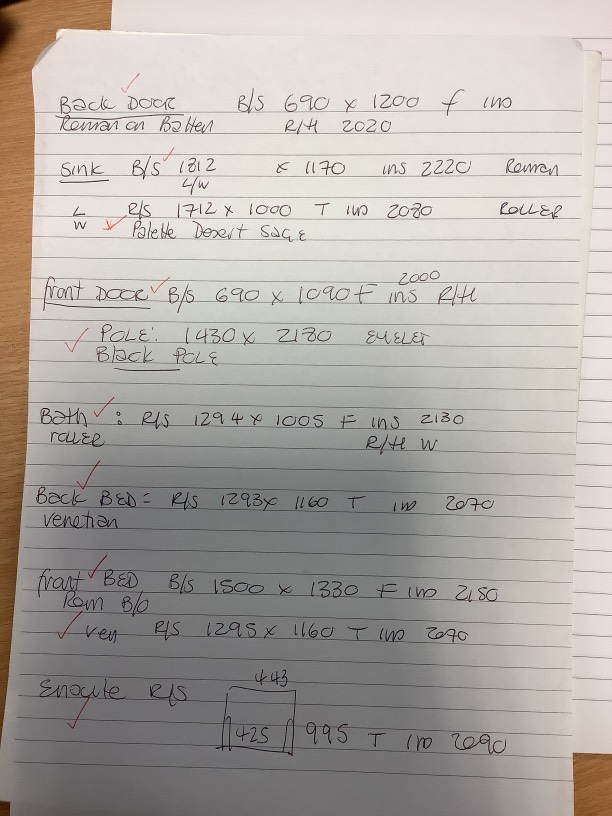 Back Door B/S 690 x 1200 f ins
Roman on Batten R/H 2020
Sink B/S 1812 x 1170 ins 2220 Roman
L/W
L/W R/S 1712 x 1000 T ins 2080 ROLLER
Palette Desert Sage
front Door B/S 690 x 1090 F ins 2000 R/H
POLE: 1430 x 2180 EYELET
Black POLE
Bath : R/S 1294 x 1005 F ins 2130
roller R/H W
Back BED = R/S 1293 x 1160 T ins 2070
venetian
front BED B/S 1500 x 1330 F ins 2150
Rom B/O
Ven R/S 1295 x 1160 T ins 2090
443
R/S
425 995 T ins 2090